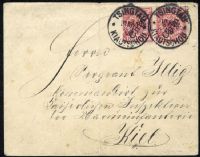 TSINGTAU
KIAUTSCHOU
TSINGTAU
KIAUTSCHOU
Herrn
Sergeant Illig
Kommandirt zur
Kaiserlichen Inspektion
der Marineinfanterie
Kiel